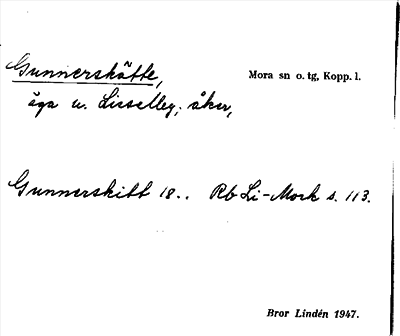 Gunnerskätte, Mora sn o. tg, Kopp. l.
äga u. Lisselby; åker,
Gunnerskitt 18.. Rb Li-Mork s. 113.
Bror Lindén 1947.